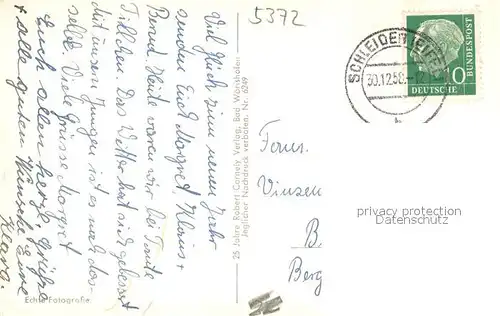 5372
Viel Glück zum neuen Jahr
senden Euch Margret, Klaus +
Bernd. Heute waren wir bei Tante
Tillchen. Das Wetter hat sich gebessert
mit unsern Jungen ist es noch das-
selbe. Viele Grüsse Margret
Euch allen herzl. Grüße
+ alle guten Wünsche Eure
Klara.
Echte Fotografie
25 Jahre Robert Cornely Verlag, Bad Wörishofen
Jeglicher Nachdruck verboten. Nr. 6249
SCHLEIDEN (EIFEL)
30.12.58.-12
b
DEUTSCHE
BUNDESPOST
10
Vinzen
B.
Berg
privacy protection
Postkarten-Paradies